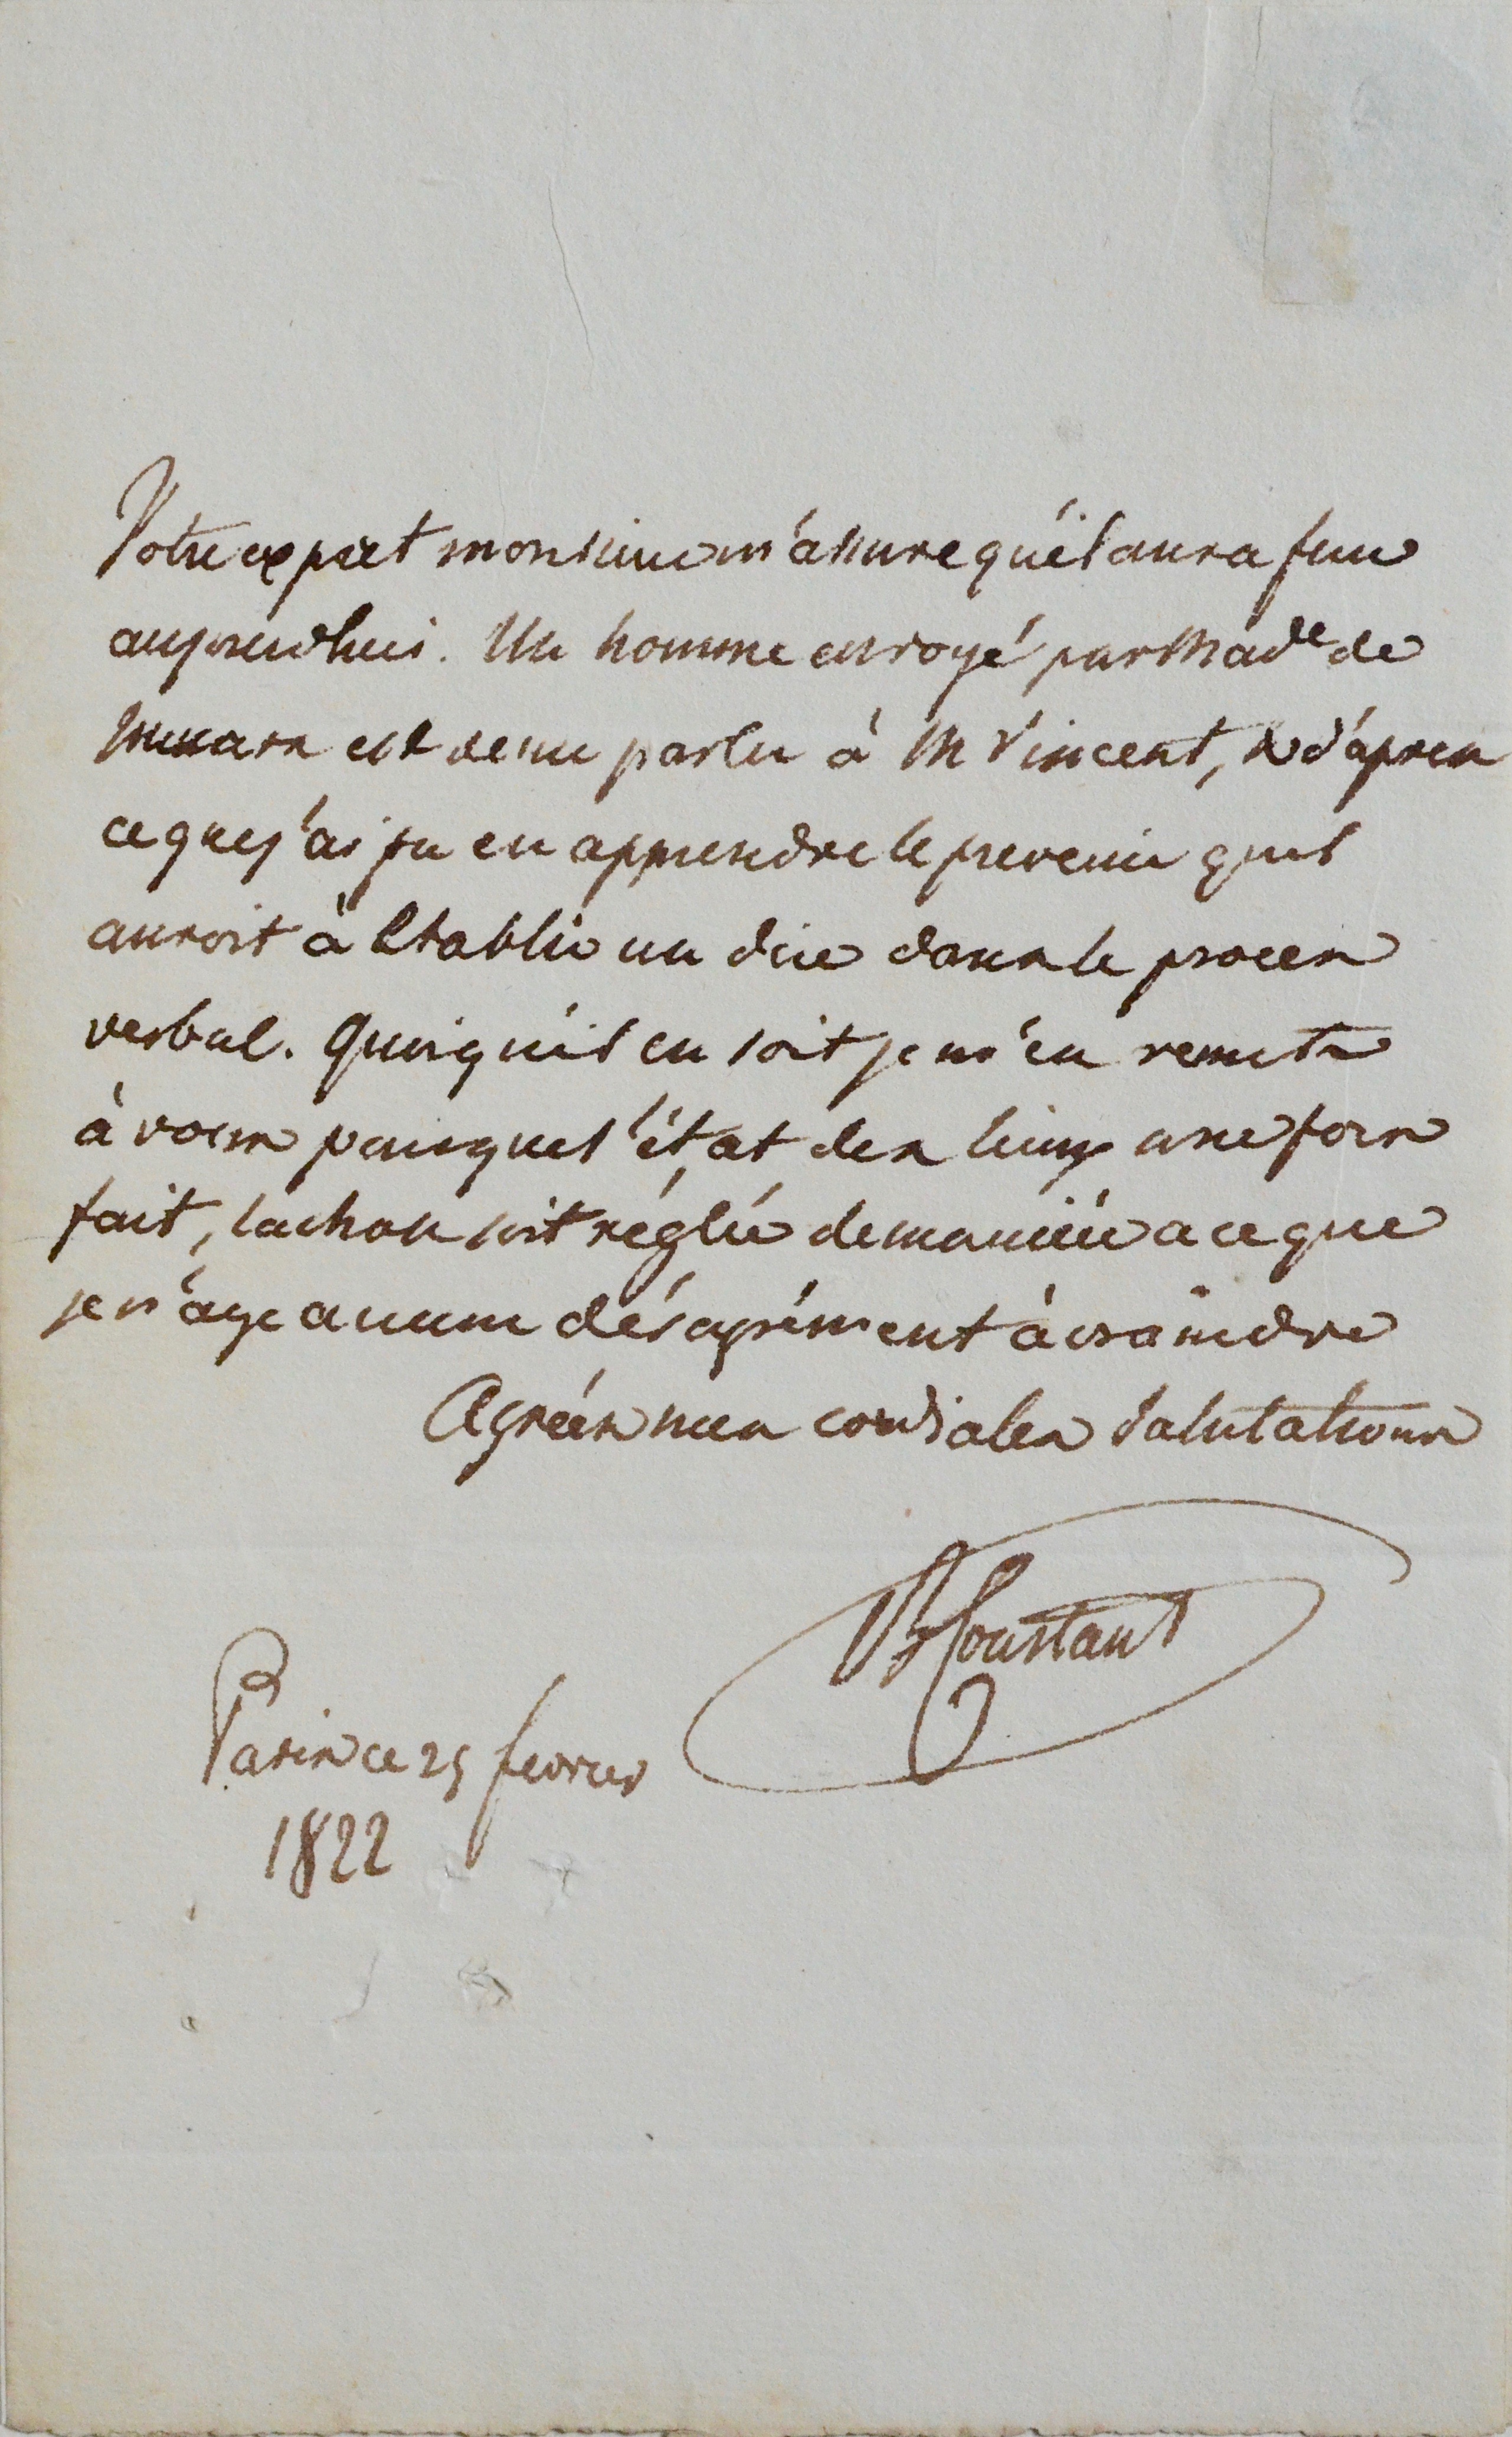 Votre expert monsieur m'assure qu'il aura fini
aujourdhui. Un homme envoyé par Made de
est venu parler à M Vincent, & d'après
ce que j'ai pu en apprendre le prevenir quil
auroit à etablir un dire dans le proces
verbal. Quoiqu'il en soit je m'en remets
à vous pour que l'état des lieux une fois
fait, la chose soit réglée de maniere a ce que
je n'aye aucun désagrément à craindre
Agréez mes cordiales salutations
B Constant
Paris ce 25 fevrier
1822